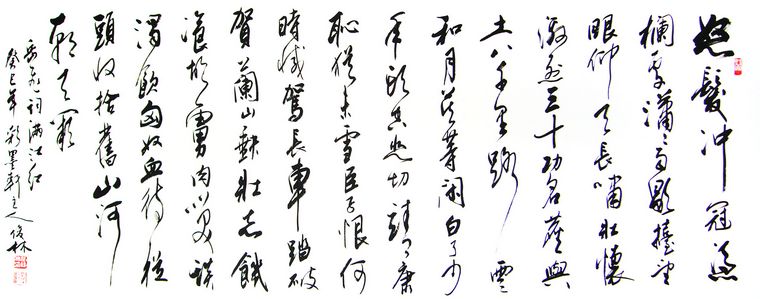 怒髮冲冠憑
欄處瀟々雨歇擡望
眼仰天長嘯壯懷
激烈三十功名塵與
土八千里路雲
和月莫等閑白了少
年頭空悲切靖康
恥猶未雪臣子恨何
時滅駕長車踏破
賀蘭山缺壯志饑
飡胡虜肉笑談
渴飲匈奴血待從
頭收拾舊山河
朝天闕
岳飛詞滿江紅
癸巳年彩墨軒主人俊林